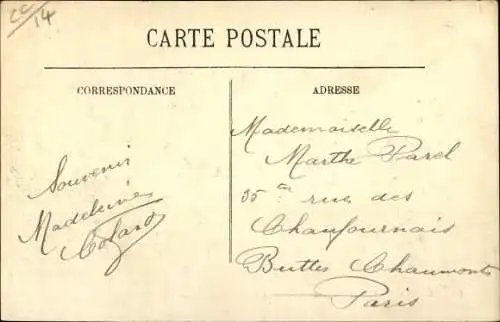 CC
14
CARTE POSTALE
CORRESPONDANCE
ADRESSE
Souvenir
Madeleine
Colard
Mademoiselle
Marthe Parel
35 ter rue des
Chaufournais
Buttes Chaumont
Paris